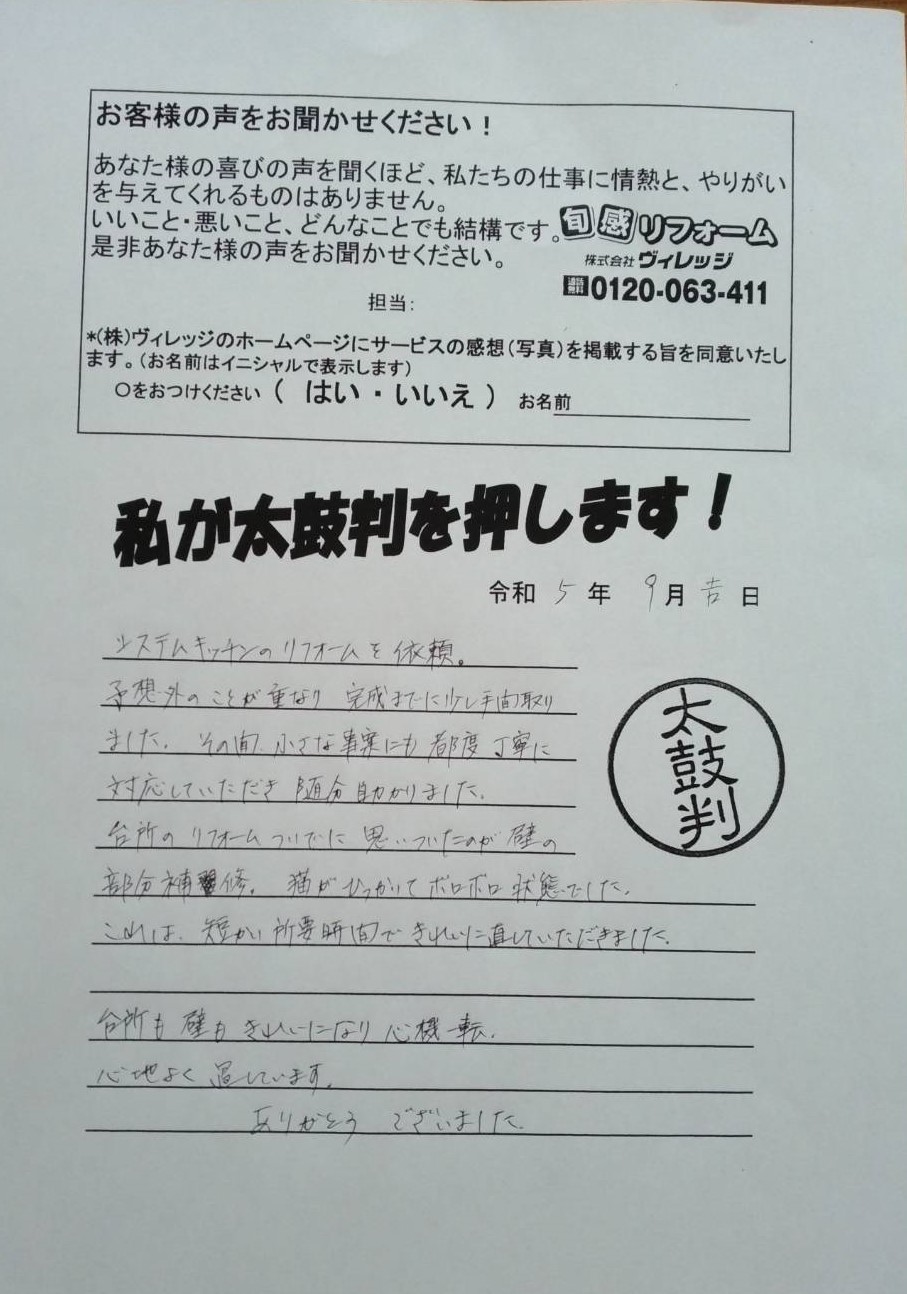 お客様の声をお聞かせください！
あなた様の喜びの声を聞くほど、私たちの仕事に情熱と、やりがい
を与えてくれるものはありません。
いいこと・悪いこと、どんなことでも結構です。
是非あなた様の声をお聞かせください。
旬感リフォーム
株式会社ヴィレッジ
通話無料0120-063-411
担当：
*(株)ヴィレッジのホームページにサービスの感想(写真)を掲載する旨を同意いたし
ます。(お名前はイニシャルで表示します)
○をおつけください（ はい ・ いいえ ） お名前
私が太鼓判を押します！
令和 5 年 9 月 吉 日
システムキッチンのリフォームを依頼。
予想外のことが重なり 完成までに少し手間取り
ました。その間、小さな事案にも都度丁寧に
対応していただき 随分助かりました。
台所のリフォームついでに思いついたのが壁の
部分補修。猫がひっかいてボロボロ状態でした。
これは、短かい所要時間できれいに直していただきました。
台所も壁もきれいになり心機一転。
心地よく過しています。
ありがとう ございました。
太鼓判